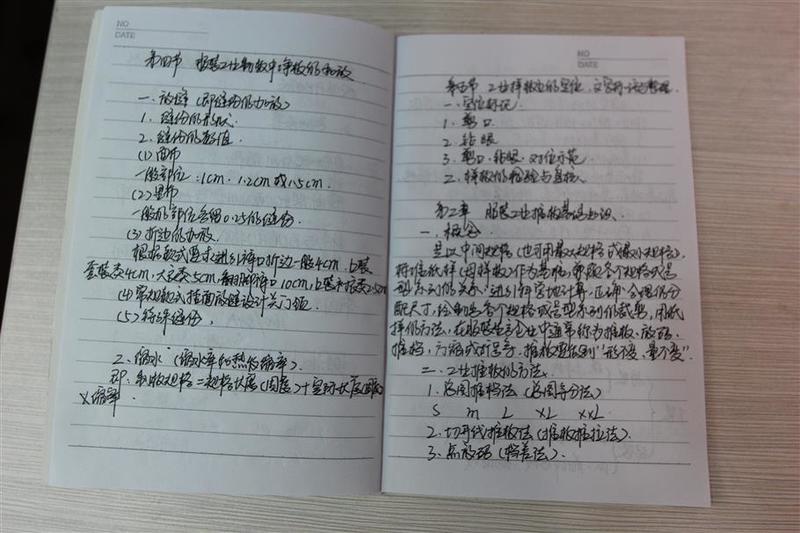 NO
DATE
第四节 服装工业制板中净板的加放
一、放缝（即缝份的加放）
1. 缝份的形状
2. 缝份的数值
(1) 面布
一般部位:1cm、1.2cm或1.5cm.
(2) 里布
一般的部位会留0.25的缝份
(3) 折边的加放
根据款式要求进行裤口折边一般4cm,上装
套装类4cm,大衣类5cm, 裤口10cm,上装
(4) 常规款式挂面的缝设计关门领
(5) 特殊缝份.
2. 缩水 (缩水率和热缩率)
即:制板规格=规格长度(围度)+实际长度(围度)
×缩率.
NO
DATE
第五节 工业样板的定位、文字标注与整理.
一、定位标记.
1. 剪口
2. 钻眼
3. 剪口、钻眼、对位示范
2. 样板的检验与复核
第二章 服装工业推板基础知识.
一、概念
是以中间规格(也可用最大规格或最小规格).
将标准样(母样板)作为基准,兼顾各个规格或号
型系列的关系,进行科学地计算,正确合理的分
配尺寸,绘制出各个规格或号型系列的裁剪,用纸
样的方法,在服装生产企业中通常称为推板、放码、
推档,门缩或打号等.推板要做到"形不变、量不变".
二、工业推板的方法.
1. 总图推档法(总图等分法)
S m L XL XXL
2. 切开线推放法(推板推拉法).
3. 点放码(档差法).